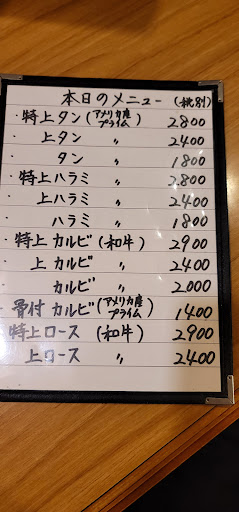 本日のメニュー (税別)
・特上タン(アメリカ産プライム) 2800
上タン 〃 2400
・タン 〃 1800
・特上ハラミ 〃 2800
上ハラミ 〃 2400
ハラミ 〃 1800
・特上カルビ(和牛) 2900
・上カルビ 〃 2400
カルビ 〃 2000
・骨付カルビ(アメリカ産プライム) 1400
特上ロース (和牛) 2900
上ロース 〃 2400